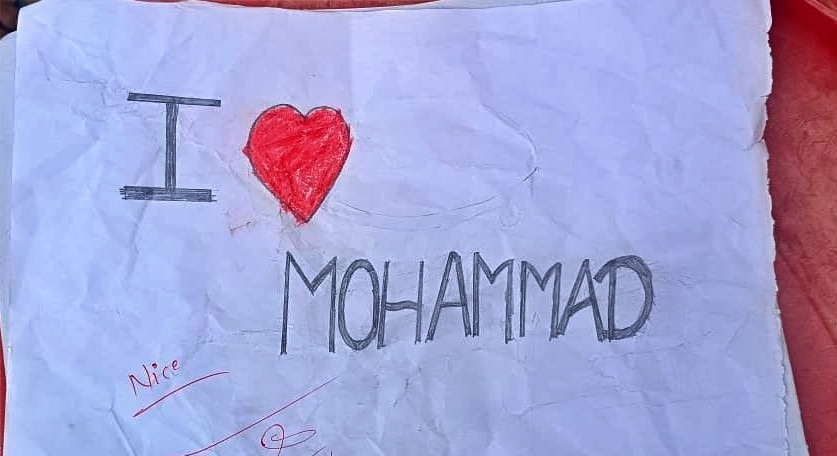 I ❤
MOHAMMAD
Nice